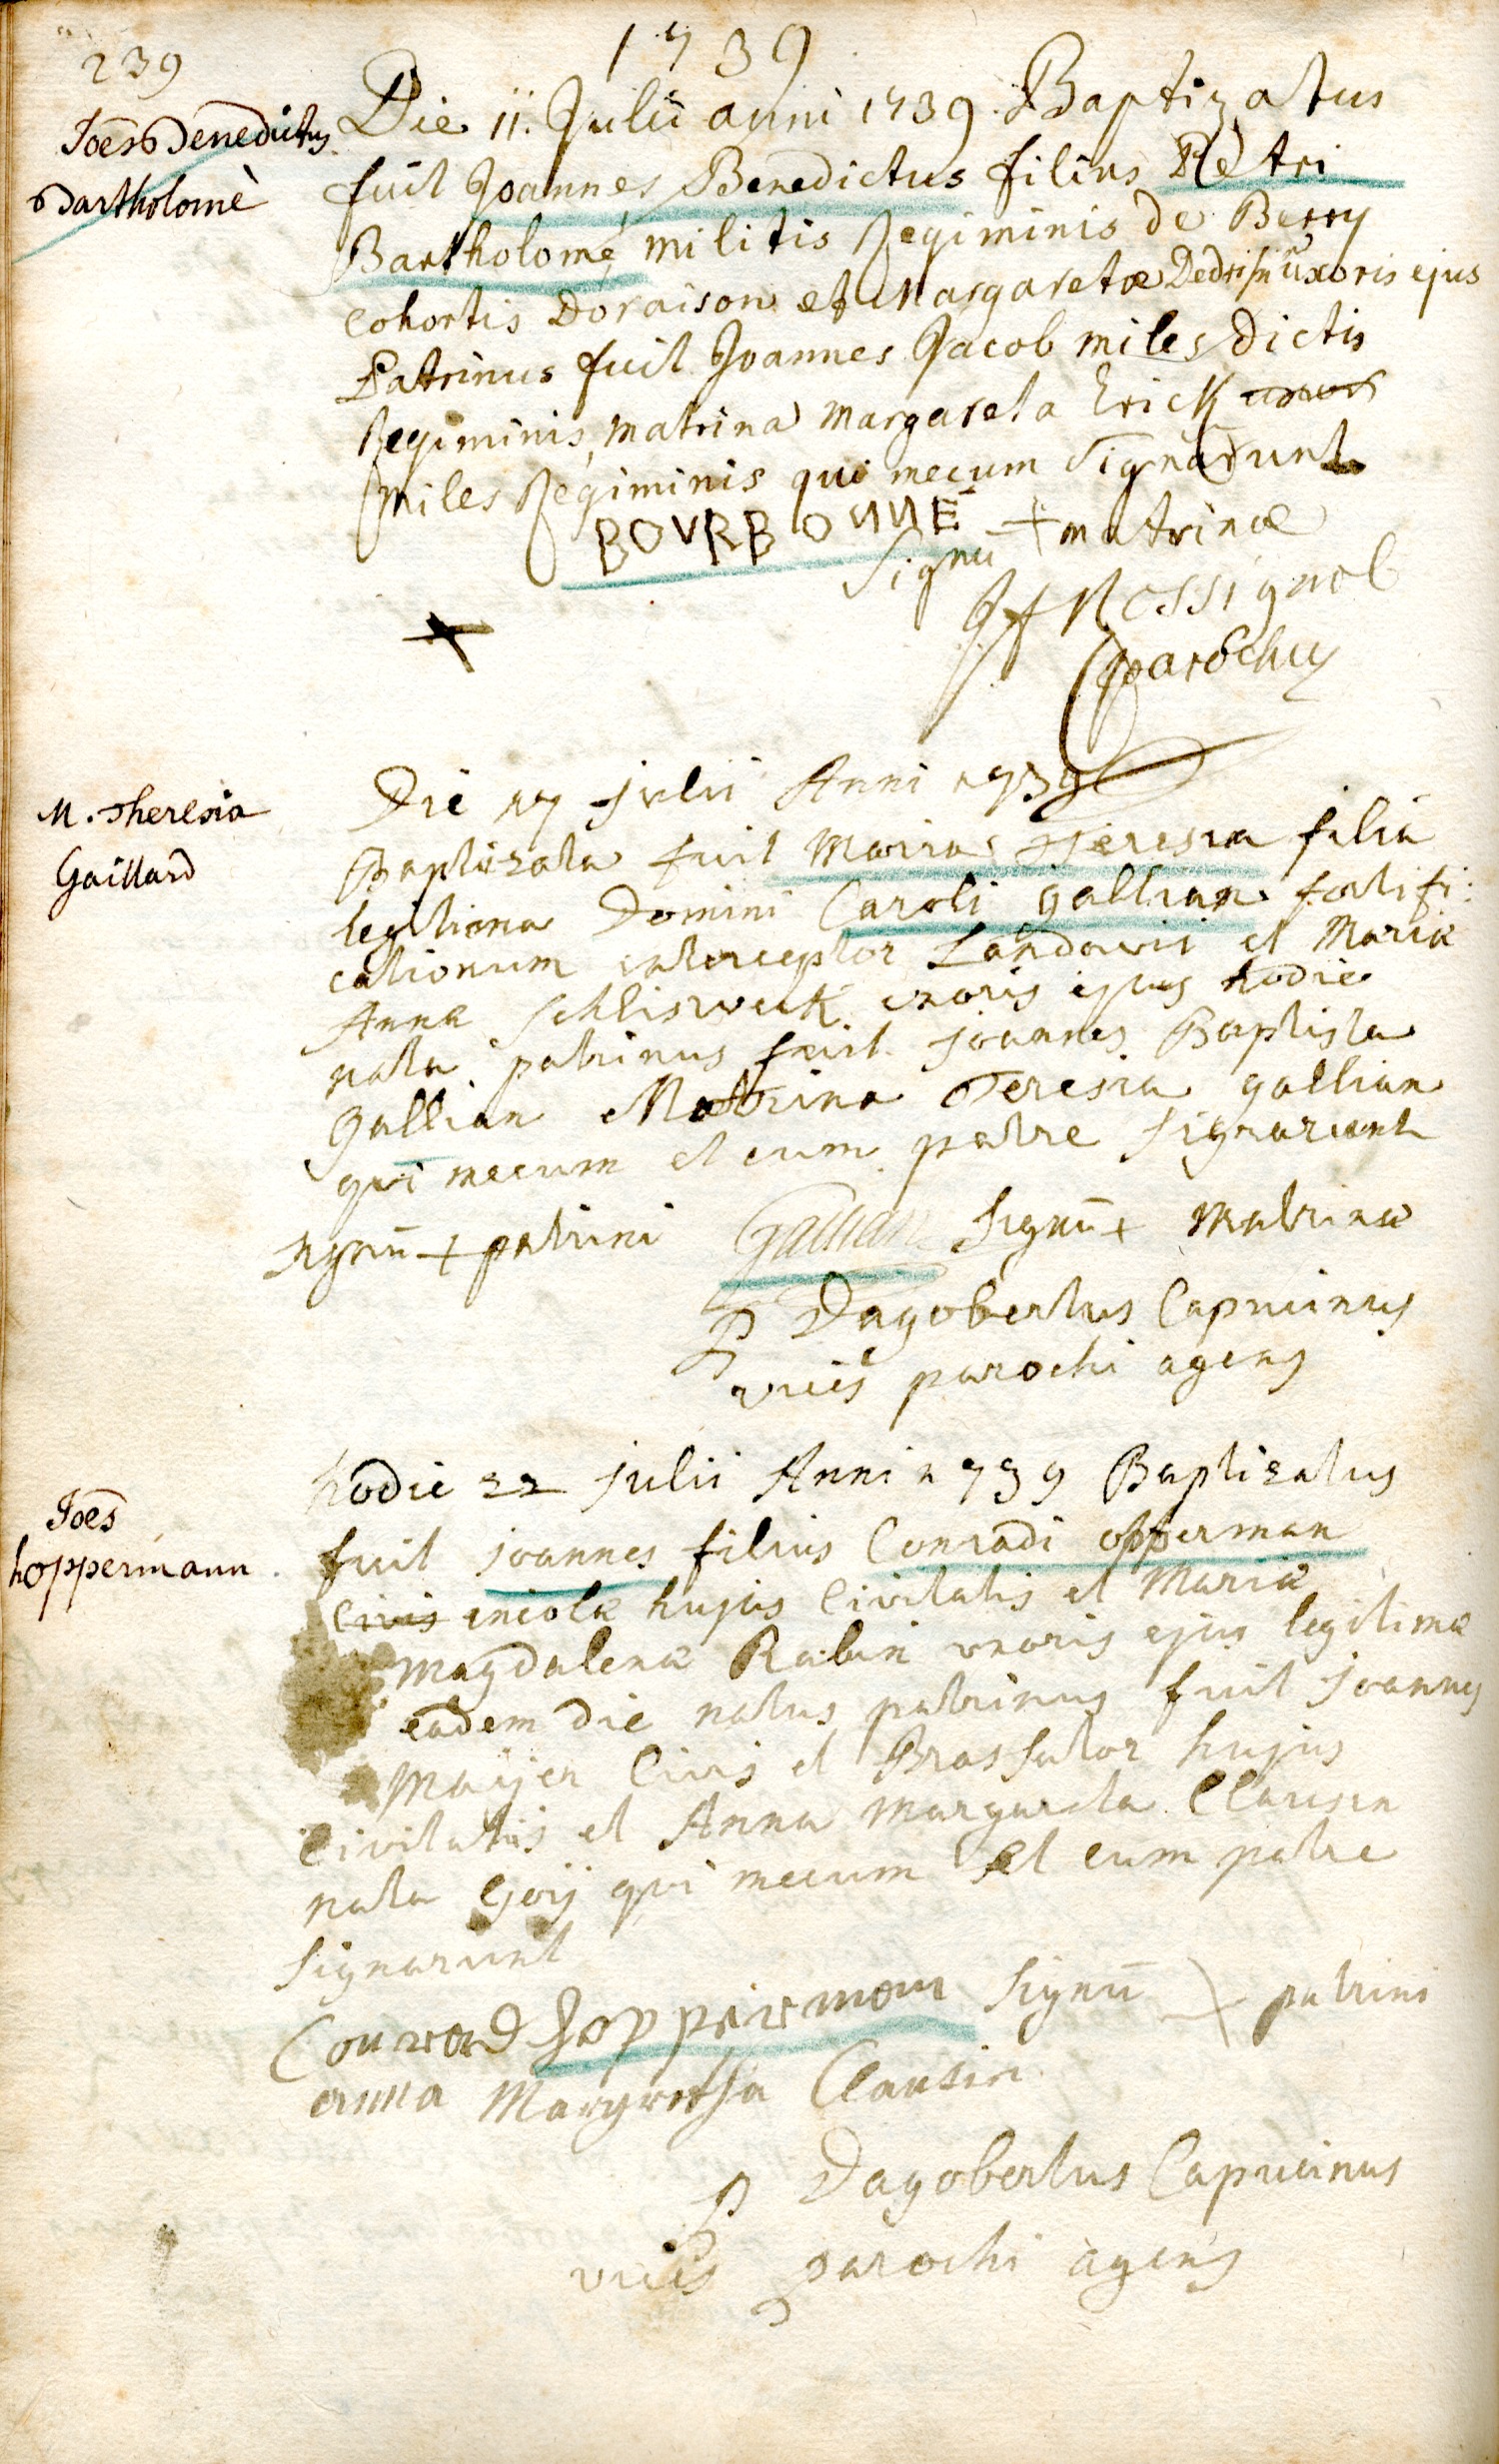 239
1739
Joēs Benedictus
Bartholomè
Die 11. Julii anni 1739. Baptizatus
fuit Joannes Benedictus filius Petri
Bartholomé militis Regiminis de Berry
cohortis Doraison et Margaretæ uxoris ejus
Patrinus fuit Joannes Jacob miles dictis
Regiminis, matrina Margareta Erick
miles Regiminis qui mecum signarunt
BOVRBONNE
signū + matrinæ
Rossignol
parochus
M. Theresia
Gaillard
Die 17 Julii Anni 1739
Baptizata fuit Maria Teresia filia
legitima Domini Caroli gallian fortifi:
cationum interceptor Landavii et Mariæ
Annæ Schlisweck uxoris ejus hodie
nata patrinus fuit Joannes Baptista
gallian Matrina Teresia gallian
qui mecum et cum patre signarunt
signū + patrini Gallian signū + Matrinæ
P Dagobertus Capucinus
vices parochi agens
Joēs
hoppermann
hodie 22 Julii Anni 1739 Baptizatus
fuit joannes filius Conradi opperman
civis incolæ hujus Civitatis et Mariæ
Magdalenæ Rabin uxoris ejus legitimæ
eadem die natus patrinus fuit Joannes
Maÿer Civis et Brassator hujus
Civitatis et Anna Margareta Clausin
nata qui mecum et cum patre
signarunt
Conrad hopperman signū + patrini
anna Margretha Clausin
P Dagobertus Capucinus
vices parochi agens